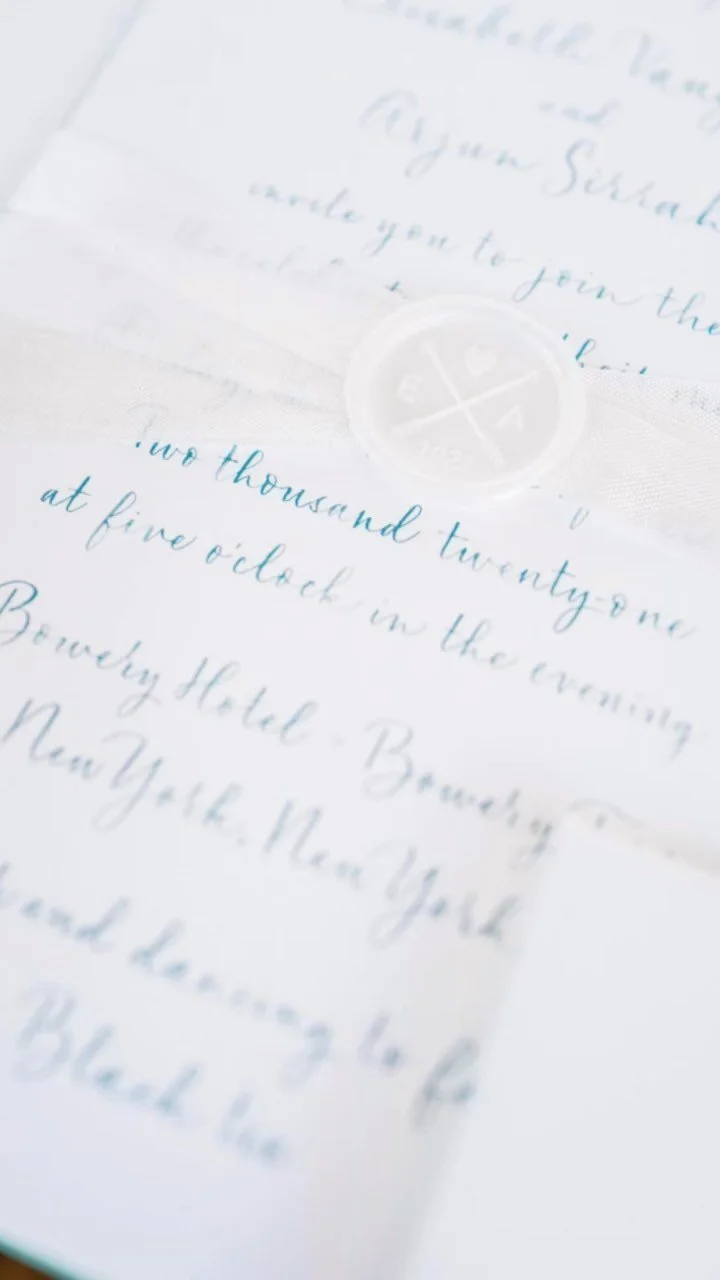 Elisabeth
and
Arjun
invite you to join the
E A
Two thousand twenty-one
at five o'clock in the evening
Bowery Hotel - Bowery
New York, New York
and dancing to
Black tie